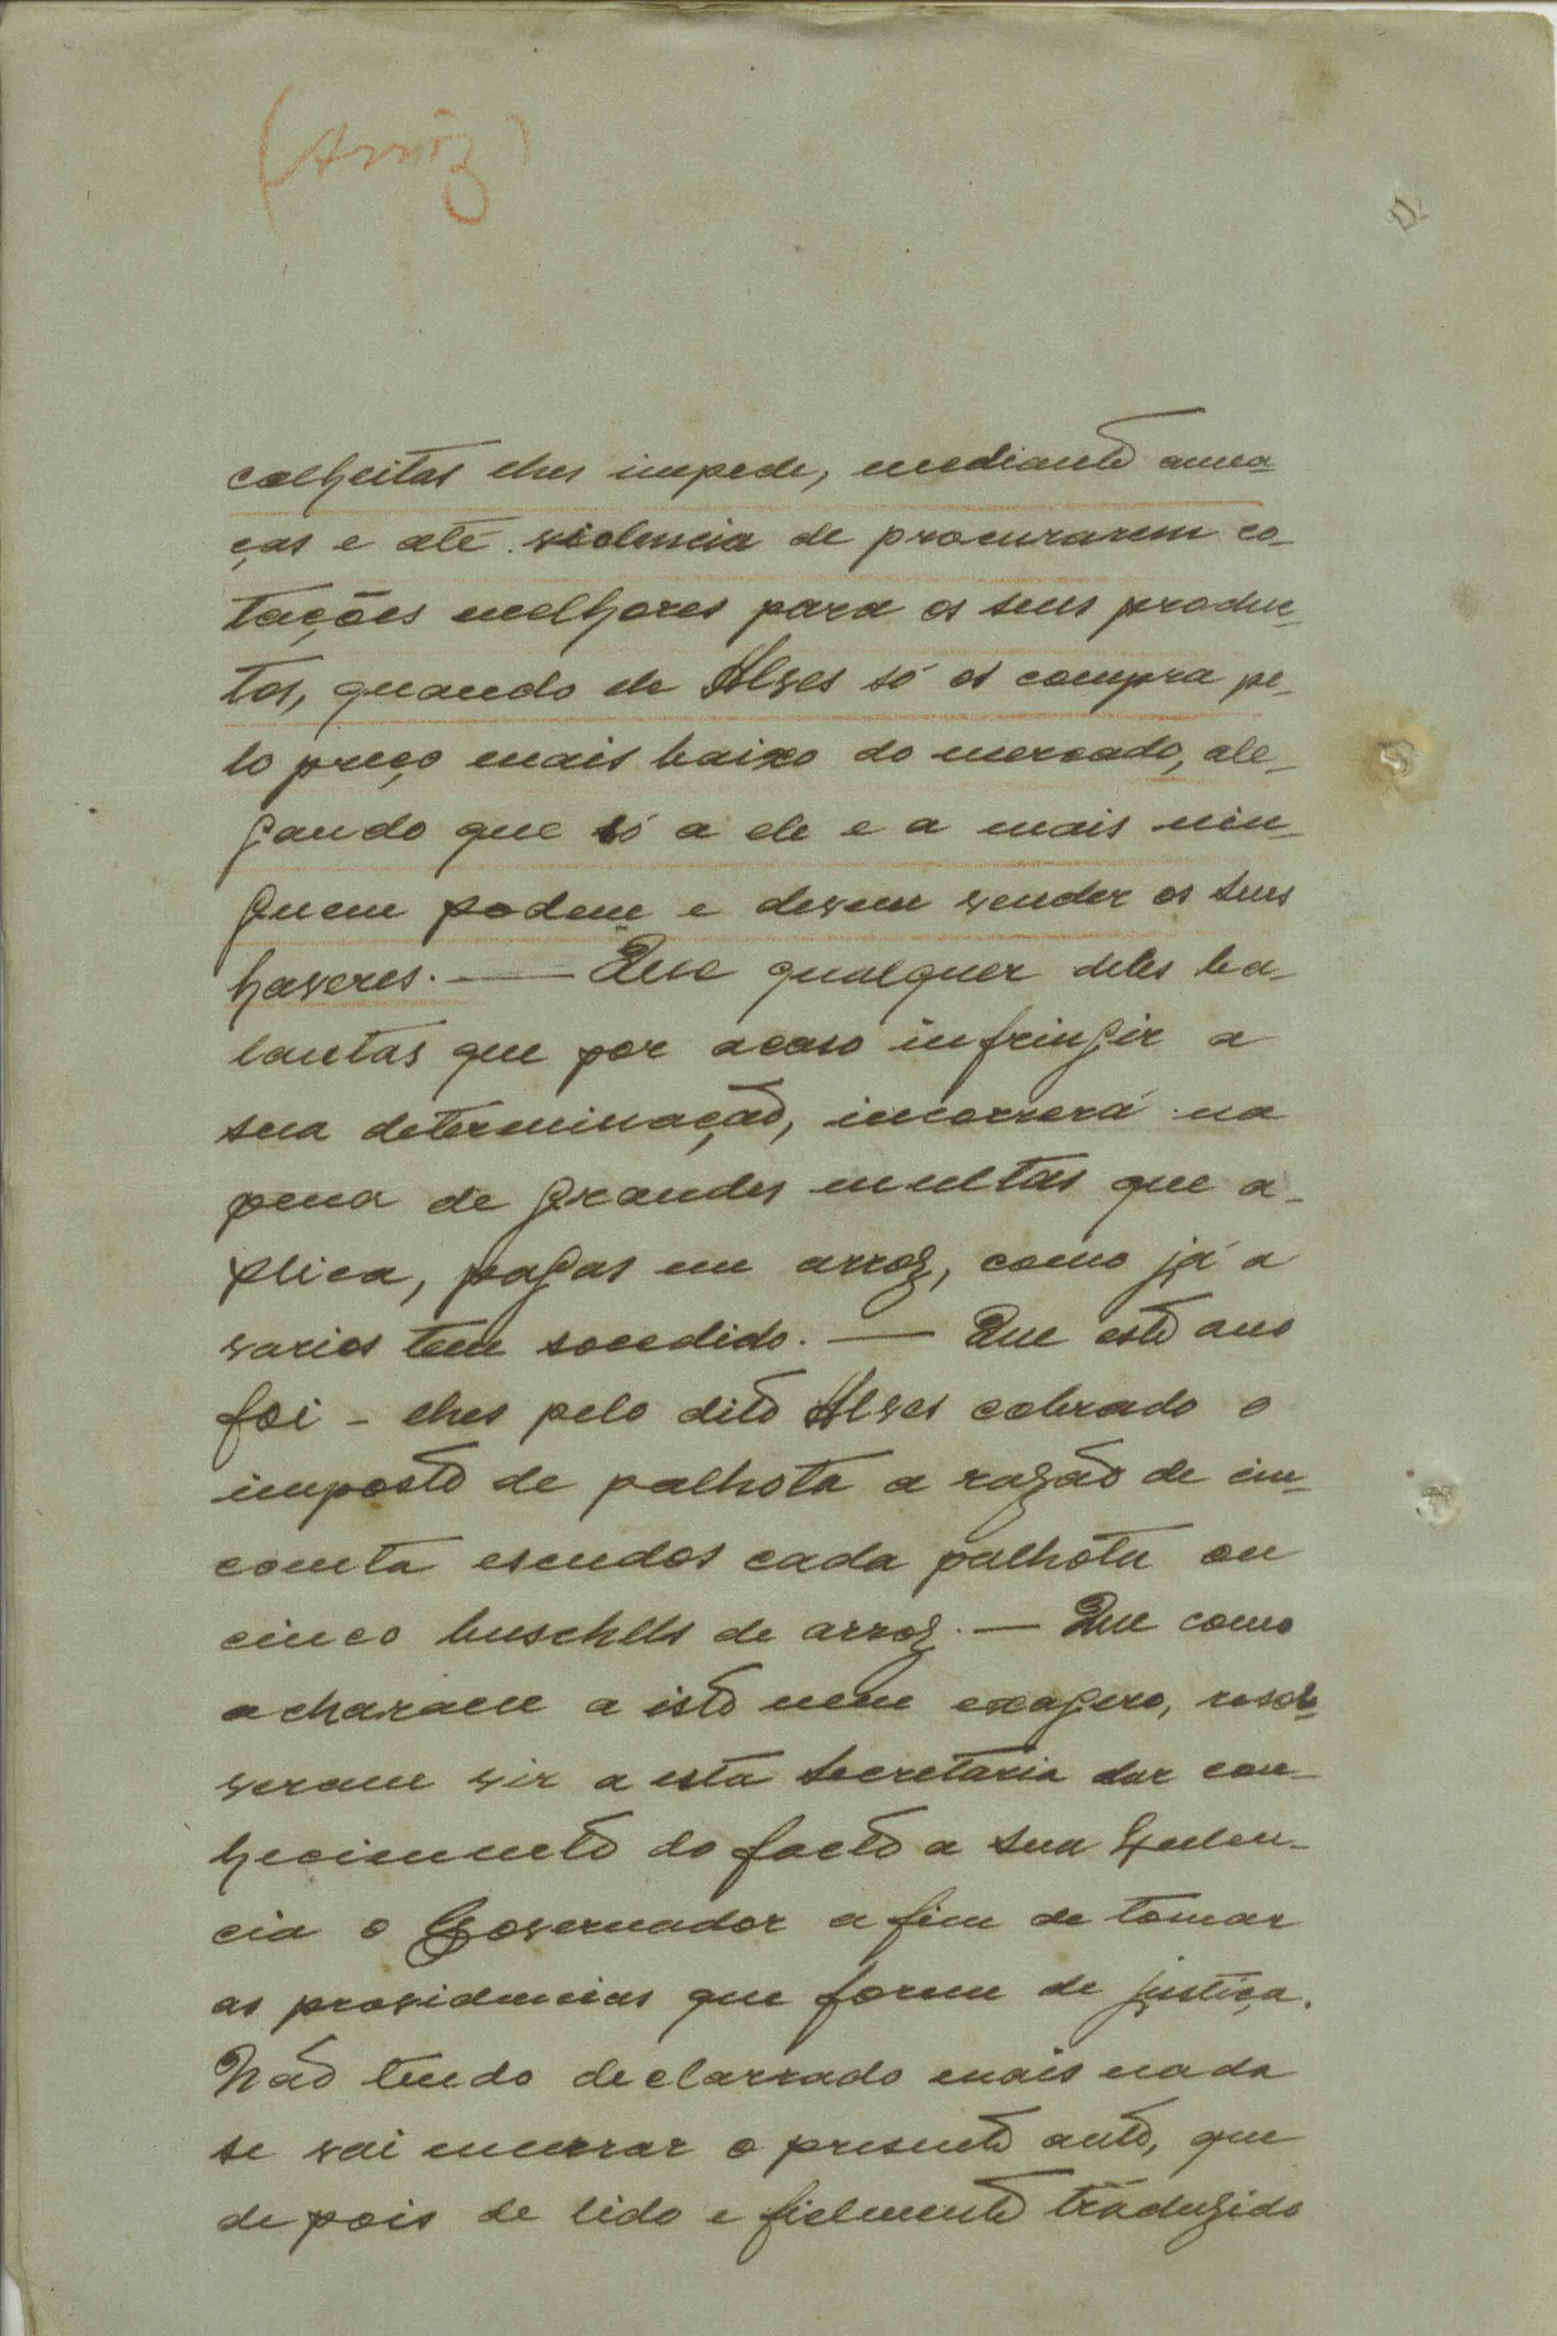 (Arrôz)
colheitas lhes impede, mediante amea
ças e até violencia de procurarem co-
tações melhores para os seus produc-
tos, quando ele Alves só os compra pe-
lo preço mais baixo do mercado, ale-
gando que só a ele e a mais nin-
guem podem e devem vender os seus
haveres. — Que qualquer deles ba-
lantas que por acaso infringir a
sua determinação, incorrerá na
pena de grandes multas que a-
plica, pagas em arroz, como já a
varios tem socedido. — Que este ano
foi-lhes pelo dito Alves cobrado o
imposto de palhota a razão de cin-
coenta escudos cada palhota ou
cinco buschells de arroz. — Que como
acharam a isto um exagero, resol-
veram vir a esta Secretaria dar con-
hecimento do facto a Sua
cia o Governador a fim de tomar
as providencias que forem de justiça.
Não tendo declarrado mais nada
se vai encerrar o presente auto, que
depois de lido e fielmente traduzido